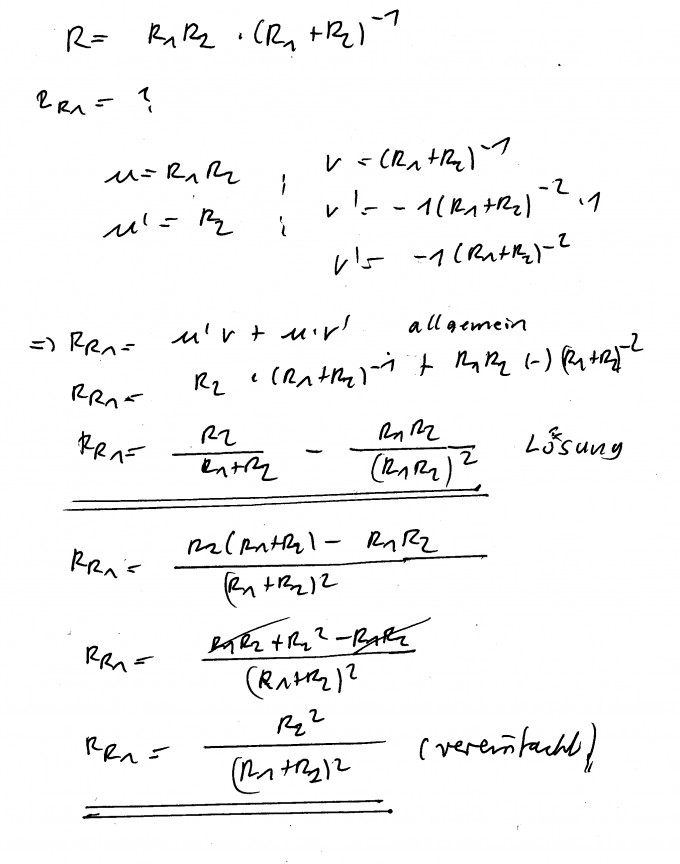 R = R₁R₂ · (R₁ + R₂)⁻¹
z_R₁ = ?
u = R₁R₂ ; v = (R₁+R₂)⁻¹
u' = R₂ ; v' = -1(R₁+R₂)⁻² · 1
v' = -1(R₁+R₂)⁻²
=) R_R₁ = u'v + u·v' allgemein
R_R₁ = R₂ · (R₁+R₂)⁻¹ + R₁R₂ (-) (R₁+R₂)⁻²
R_R₁ = R₂/(R₁+R₂) - R₁R₂/(R₁R₂)² Lösung
R_R₁ = (R₂(R₁+R₂) - R₁R₂)/(R₁+R₂)²
R_R₁ = (R₁R₂ + R₂² - R₁R₂)/(R₁+R₂)²
R_R₁ = R₂²/(R₁+R₂)² (vereinfacht)